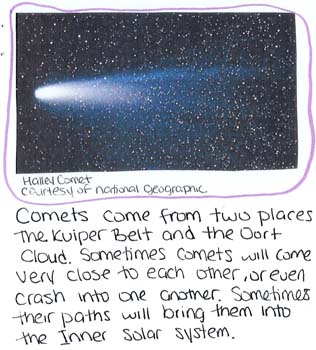 Halley Comet
courtesy of national geographic
Comets come from two places
The Kuiper Belt and the Oort
Cloud. Sometimes comets will come
very close to each other, or even
crash into one another. Sometimes
their paths will bring them into
the Inner Solar system.